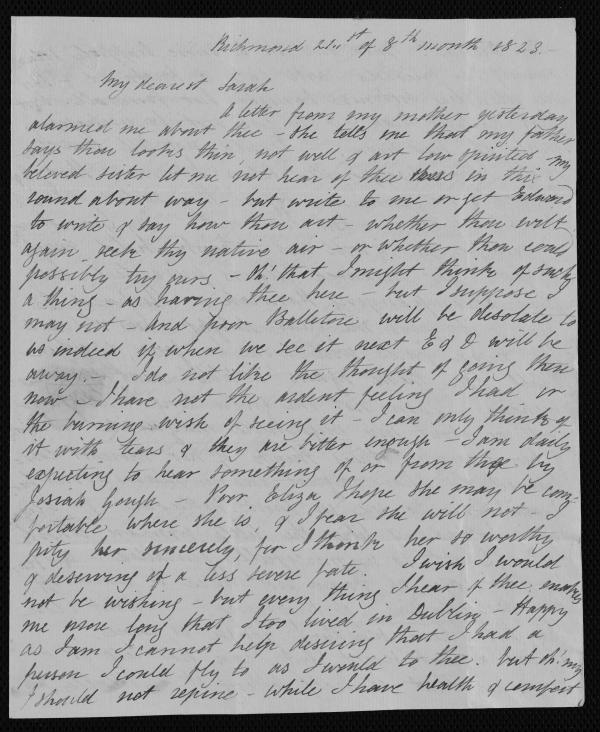 Richmond 21st of 8th month 1823.
My dearest Sarah
A letter from my mother yesterday
alarmed me about thee - she tells me that my father
says thou looks thin, not well & art low spirited - my
beloved sister let me not hear of thee thus in this
round about way - but write to me or get Edward
to write & say how thou art - whether thou wilt
again seek thy native air - or whether thou could
possibly try ours - Oh! that I might think of such
a thing - as having thee here - but I suppose I
may not - And poor Ballitore will be desolate to
us indeed if when we see it next E & D will be
away - I do not like the thought of going there
now - I have not the ardent feeling I had or
the burning wish of seeing it - I can only think of
it with tears & they are bitter enough - I am daily
expecting to hear something of or from thee by
Josiah Gough - Poor Eliza I hope she may be com-
fortable where she is, & I fear she will not - I
pity her sincerely, for I think her so worthy
& deserving of a less severe fate. I wish I would
not be wishing - but every thing I hear of thee makes
me more long that I too lived in Dublin - Happy
as I am I cannot help desiring that I had a
person I could fly to as I would to thee. but oh! my
I should not repine - while I have health & comfort